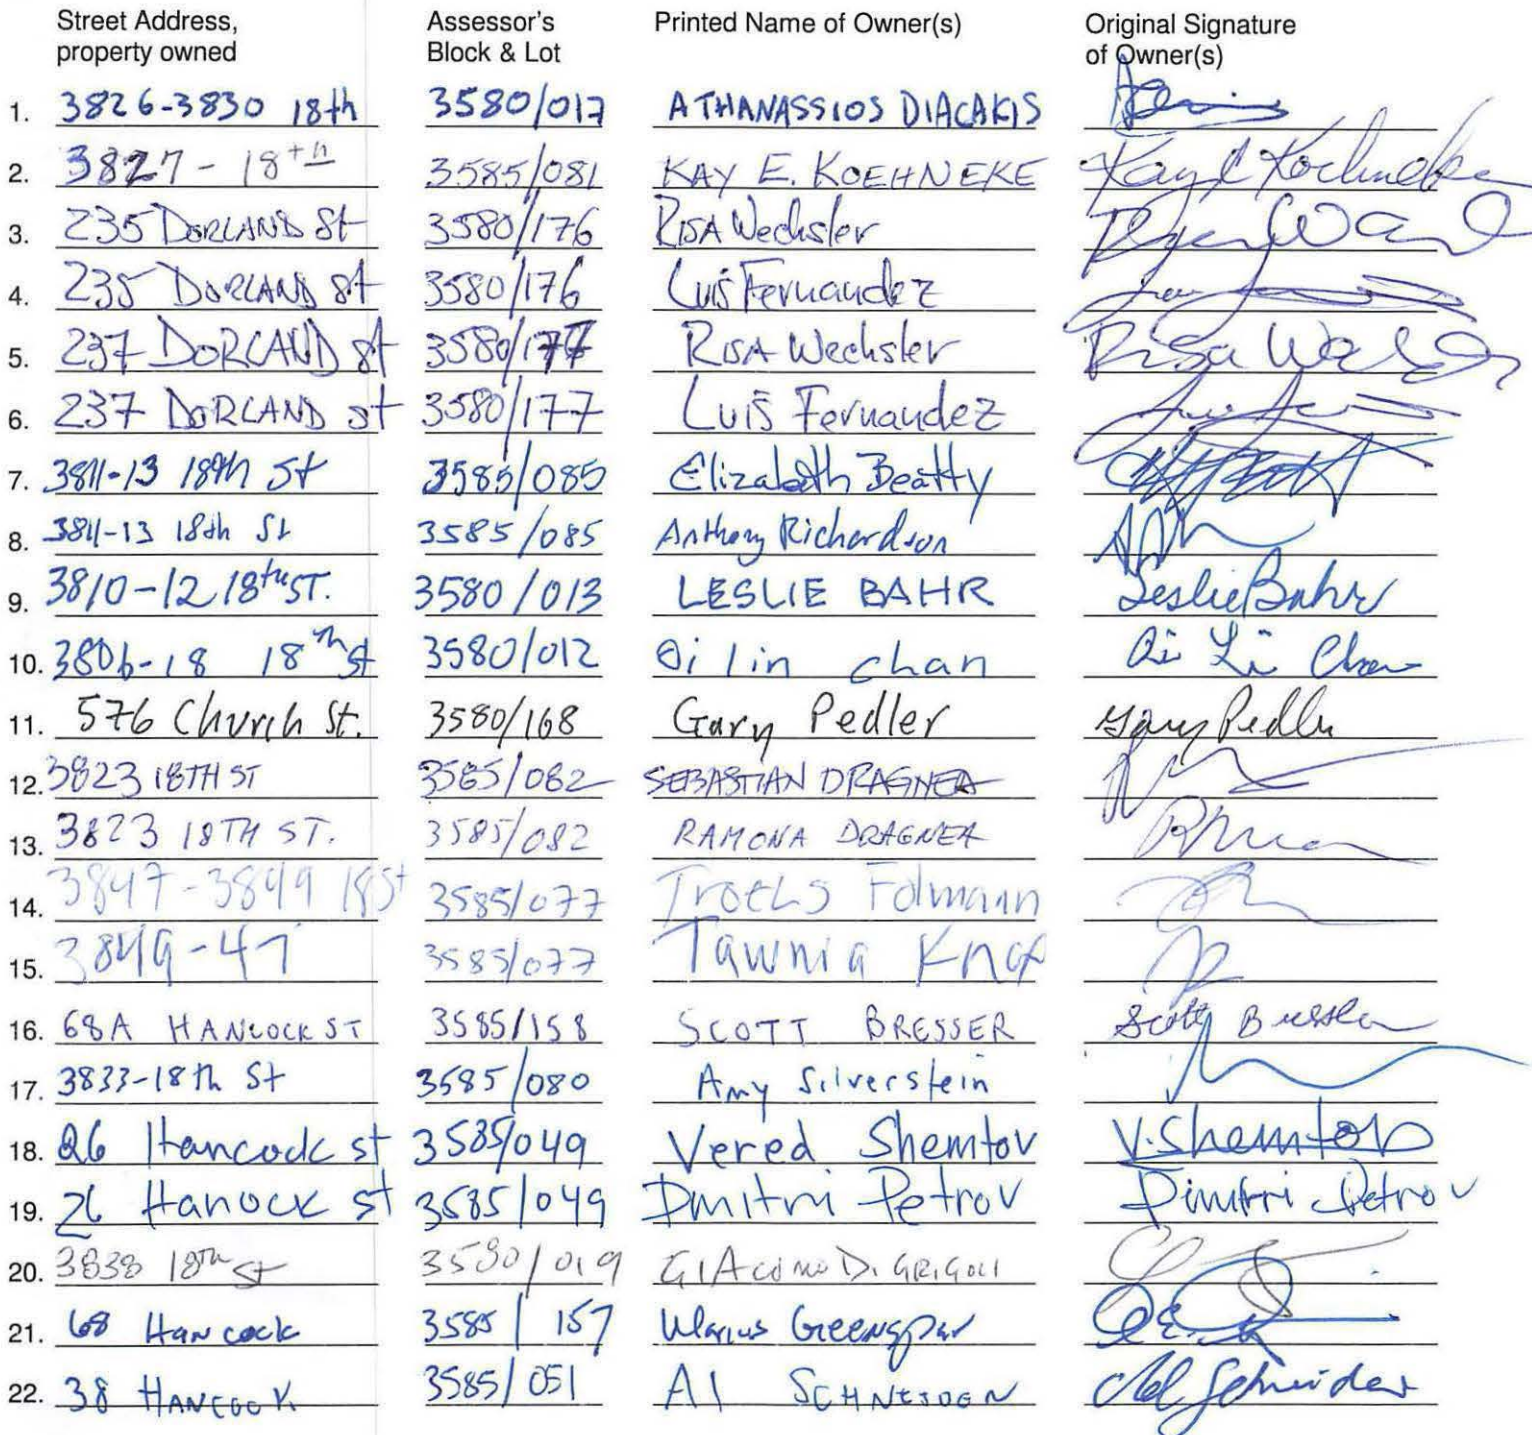 Street Address, property owned Assessor's Block & Lot Printed Name of Owner(s) Original Signature of Owner(s)
1. 3826-3830 18th 3580/017 ATHANASSIOS DIACAKIS
2. 3827 - 18th 3585/081 KAY E. KOEHNEKE Kay E Koehneke
3. 235 DORLAND St 3580/176 RISA Wechsler
4. 235 DORLAND St 3580/176 Luis Fernandez
5. 237 DORLAND St 3580/177 RISA Wechsler Risa
6. 237 DORLAND st 3580/177 Luis Fernandez
7. 3811-13 18th St 3585/085 Elizabeth Beatty
8. 3811-13 18th St 3585/085 Anthony Richardson
9. 3810-12 18th ST. 3580/013 LESLIE BAHR Leslie Bahr
10. 3806-18 18th st 3580/012 Qi lin chan Qi Li Chan
11. 576 Church St. 3580/168 Gary Pedler Gary Pedler
12. 3823 18TH ST 3585/082 SEBASTIAN DRAGNEA
13. 3823 18TH ST. 3585/082 RAMONA DRAGNEA
14. 3847-3849 18St 3585/077 Troels Folmann
15. 3849-47 3585/077 Tawnia Knox
16. 68A HANCOCK ST 3585/158 SCOTT BRESSER Scott Bresser
17. 3833-18th St 3585/080 Amy Silverstein
18. 26 Hancock st 3585/049 Vered Shemtov V. Shemtov
19. 26 Hanock st 3585/049 Dmitri Petrov Dmitri Petrov
20. 3838 18th st 3580/019 GIACOMO DiGRIGOLI
21. 68 Hancock 3585/157 Marius Greenspan
22. 38 HANCOCK 3585/051 Al SCHNEIDER Al Schneider